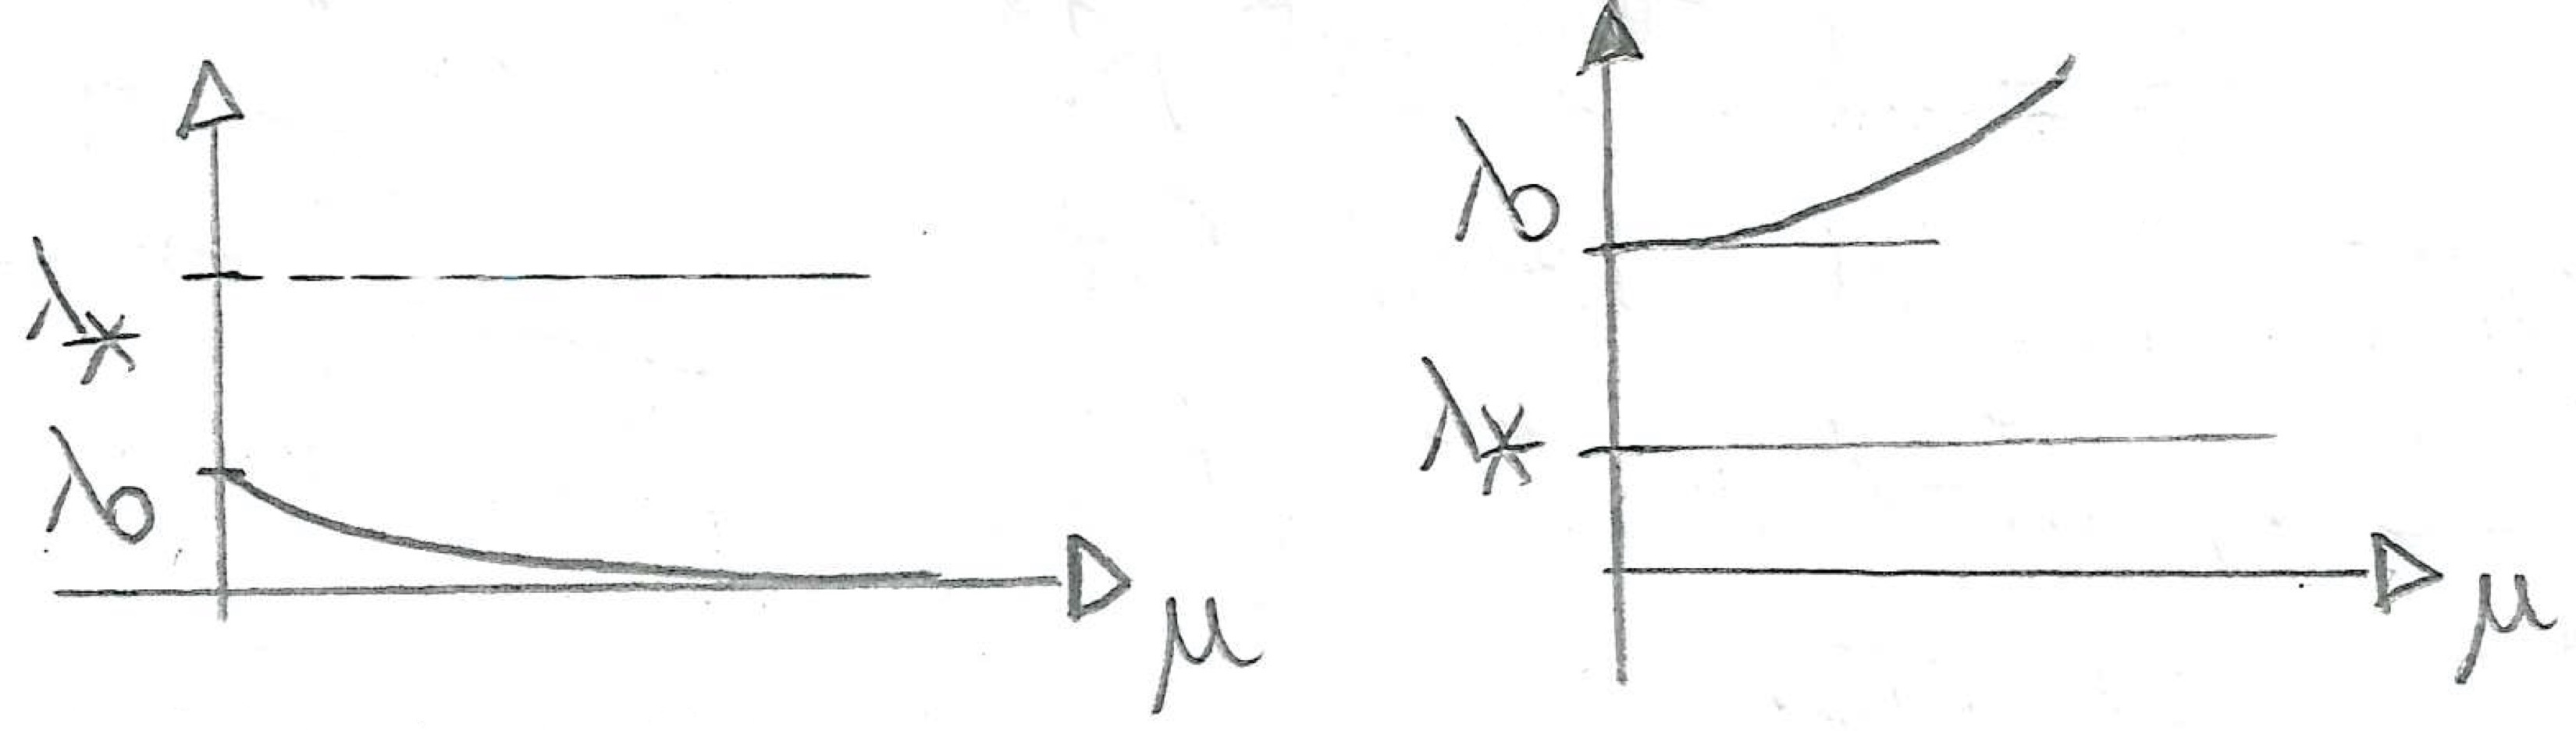 λ*
λ0
μ
λ0
λ*
μ